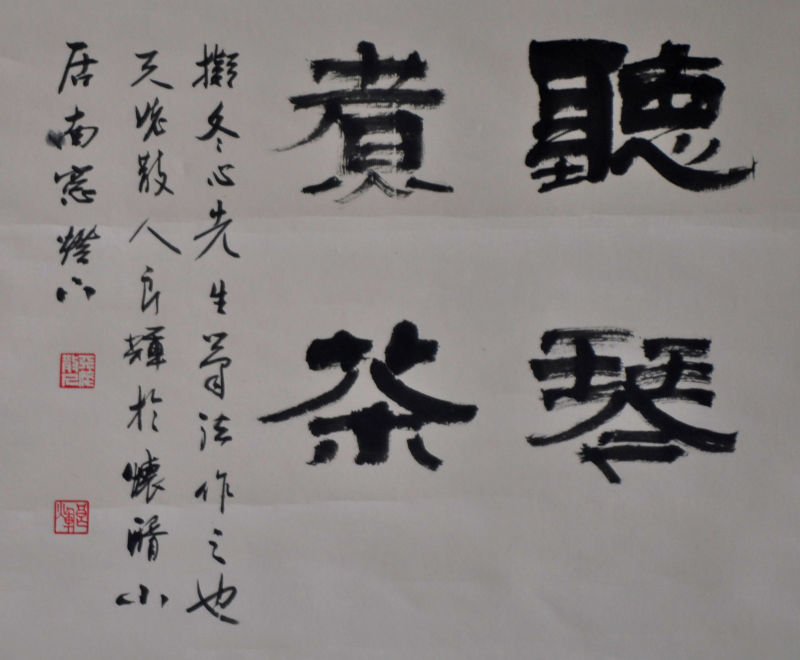 聽琴
煮茶
擬冬心先生筆法作之也
天姥散人良輝於懷醑小
居南窓燈下